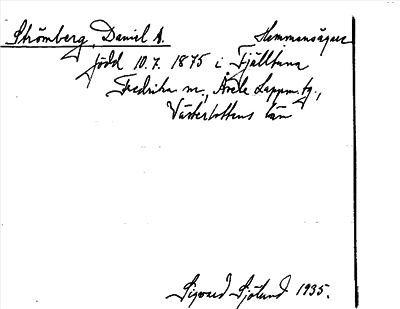 Strömberg, Daniel A. Hemmansägare
född 10.7. 1875 i Tjälltuna
Fredrika sn., Åsele Lappm. tg.,
Västerbottens län
Sigvard Sjölund 1935.